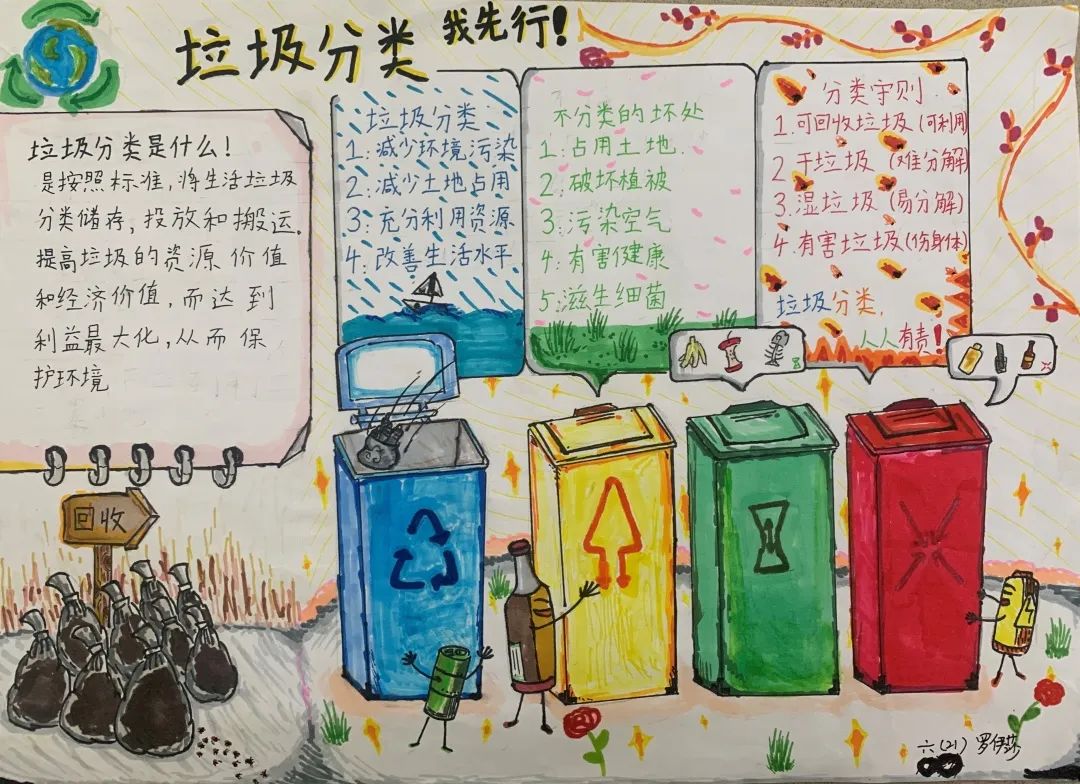 垃圾分类 我先行!
垃圾分类是什么!
是按照标准,将生活垃圾
分类储存,投放和搬运.
提高垃圾的资源价值
和经济价值,而达到
利益最大化,从而保
护环境
垃圾分类
1:减少环境污染
2:减少土地占用
3:充分利用资源
4:改善生活水平
不分类的坏处
1:占用土地.
2:破坏植被
3:污染空气
4:有害健康
5:滋生细菌
分类守则
1.可回收垃圾(可利用)
2干垃圾(难分解)
3.湿垃圾(易分解)
4.有害垃圾(伤身体)
垃圾分类,
人人有责!
回收
六(21) 罗伊莎